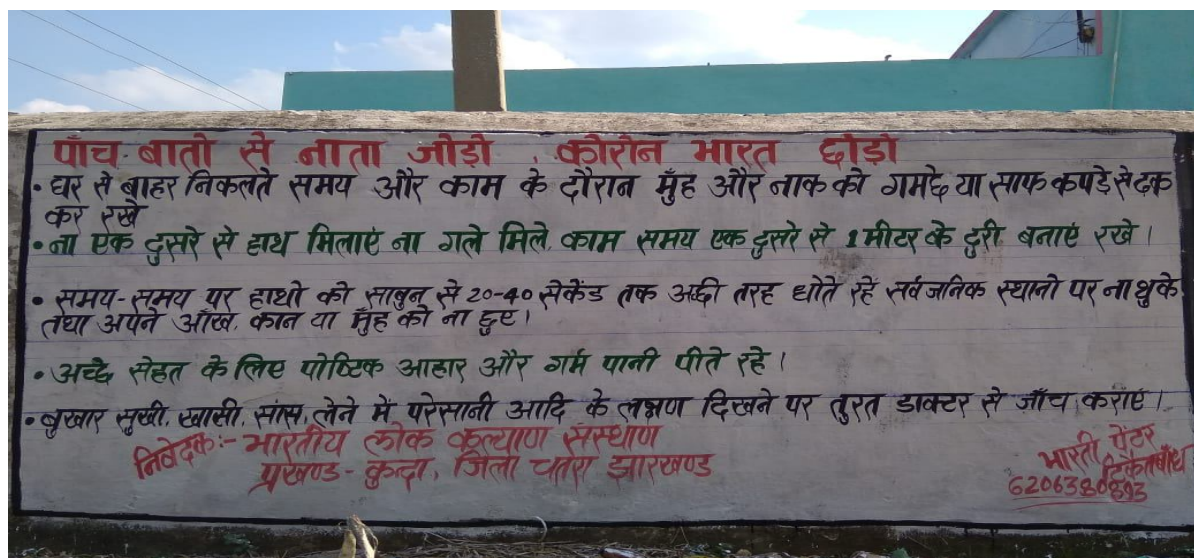 पाँच बातो से नाता जोड़ो , कोरोन भारत छोड़ो
• घर से बाहर निकलते समय और काम के दौरान मुँह और नाक को गमछे या साफ कपड़े से ढक
कर रखे
• ना एक दुसरे से हाथ मिलाएं ना गले मिले, काम समय एक दुसरे से 1 मीटर के दुरी बनाएं रखे।
• समय-समय पर हाथो को साबुन से 20-40 सेकेंड तक अछी तरह धोते रहें सर्वजनिक स्थानो पर ना थुके
तथा अपने आँख, कान या मुँह को ना छुए।
• अच्छे सेहत के लिए पोष्टिक आहार और गर्म पानी पीते रहे।
• बुखार सुखी, खासी, सांस, लेने में परेसानी आदि के लक्षण दिखने पर तुरत डाक्टर से जाँच कराएं।
निवेदक:- भारतीय लोक कल्याण संस्थाण
प्रखण्ड - कुन्दा, जिला चतरा झारखण्ड
भारती पेंटर
6206380893